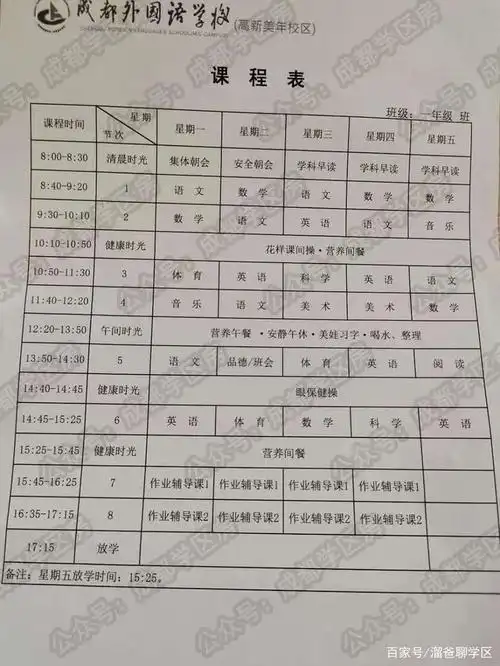 成都外国语学校 (高新美年校区)
CHENGDU FOREIGN LANGUAGES SCHOOL
课 程 表
班级：一年级 班
课程时间 星期 节次 星期一 星期二 星期三 星期四 星期五
8:00-8:30 清晨时光 集体朝会 安全朝会 学科早读 学科早读 学科早读
8:40-9:20 1 语 文 数 学 语 文 数 学 数 学
9:30-10:10 2 数 学 语 文 英 语 语 文 音 乐
10:10-10:50 健康时光 花样课间操·营养间餐
10:50-11:30 3 体 育 英 语 科 学 英 语 语 文
11:40-12:20 4 音 乐 语 文 美 术 美 术 数 学
12:20-13:50 午间时光 营养午餐 ·安静午休·美娃习字·喝水、整理
13:50-14:30 5 语 文 品德/班会 体 育 英 语 阅 读
14:40-14:45 健康时光 眼保健操
14:45-15:25 6 英 语 体 育 数 学 科 学 英 语
15:25-15:45 健康时光 营养间餐
15:45-16:25 7 作业辅导课1 作业辅导课1 作业辅导课1 作业辅导课1
16:35-17:15 8 作业辅导课2 作业辅导课2 作业辅导课2 作业辅导课2
17:15 放学
备注：星期五放学时间：15:25。
公众号：成都学区房
百家号/溜爸聊学区